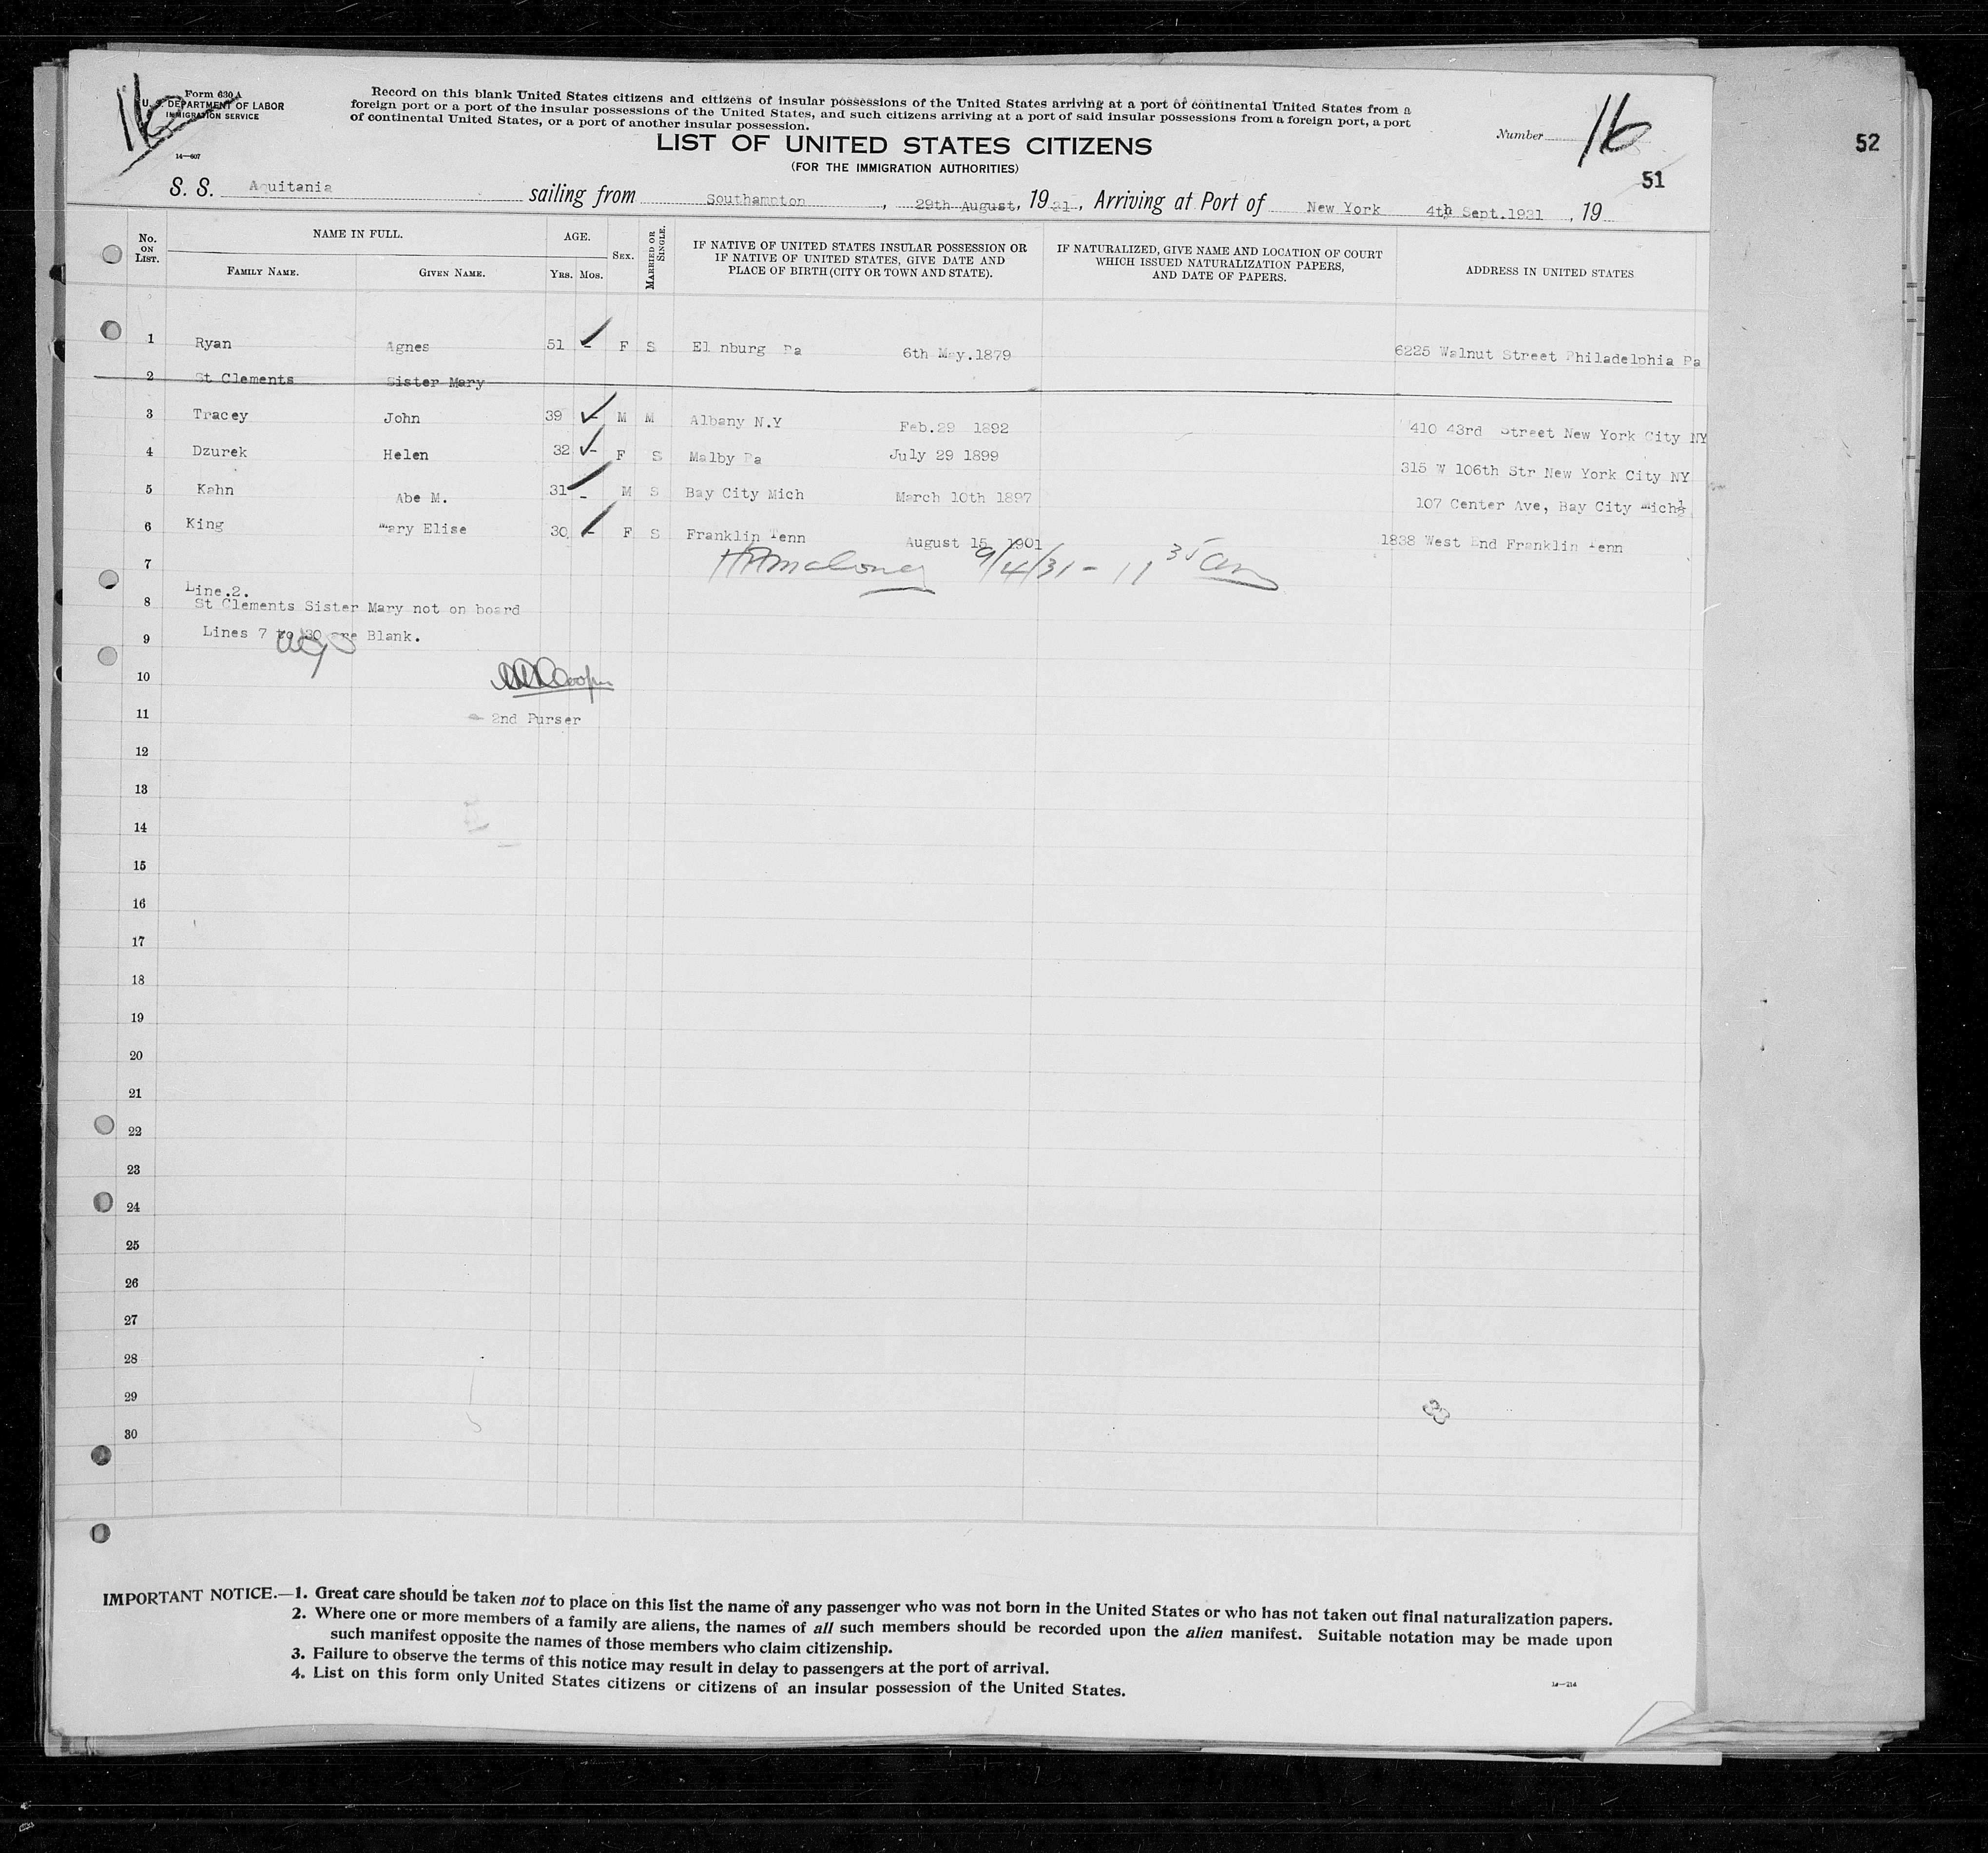 16
Form 630 A
U. S. DEPARTMENT OF LABOR
IMMIGRATION SERVICE
14—607
Record on this blank United States citizens and citizens of insular possessions of the United States arriving at a port of continental United States from a
foreign port or a port of the insular possessions of the United States, and such citizens arriving at a port of said insular possessions from a foreign port, a port
of continental United States, or a port of another insular possession.
Number 16
52
LIST OF UNITED STATES CITIZENS
(FOR THE IMMIGRATION AUTHORITIES)
51
S. S. Aquitania sailing from Southampton, 29th August, 1931, Arriving at Port of New York 4th Sept.1931, 19
No. ON LIST. NAME IN FULL. AGE. SEX. MARRIED OR SINGLE. IF NATIVE OF UNITED STATES INSULAR POSSESSION OR IF NATIVE OF UNITED STATES, GIVE DATE AND PLACE OF BIRTH (CITY OR TOWN AND STATE). IF NATURALIZED, GIVE NAME AND LOCATION OF COURT WHICH ISSUED NATURALIZATION PAPERS, AND DATE OF PAPERS. ADDRESS IN UNITED STATES
FAMILY NAME. GIVEN NAME. YRS. MOS.
1 Ryan Agnes 51 - F S El nburg Pa 6th May.1879 6225 Walnut Street Philadelphia Pa
2 St Clements Sister Mary
3 Tracey John 39 - M M Albany N.Y Feb.29 1892 410 43rd Street New York City NY
4 Dzurek Helen 32 - F S Malby Pa July 29 1899 315 W 106th Str New York City NY
5 Kahn Abe M. 31 - M S Bay City Mich March 10th 1897 107 Center Ave, Bay City Mich
6 King Mary Elise 30 - F S Franklin Tenn August 15 1901 1838 West End Franklin Tenn
7 9/4/31 - 11 35 am
Line.2.
8 St Clements Sister Mary not on board
9 Lines 7 to 30 are Blank.
10 Cooper
11 2nd Purser
12
13
14
15
16
17
18
19
20
21
22
23
24
25
26
27
28
29
30
33
IMPORTANT NOTICE.—1. Great care should be taken not to place on this list the name of any passenger who was not born in the United States or who has not taken out final naturalization papers.
2. Where one or more members of a family are aliens, the names of all such members should be recorded upon the alien manifest. Suitable notation may be made upon
such manifest opposite the names of those members who claim citizenship.
3. Failure to observe the terms of this notice may result in delay to passengers at the port of arrival.
4. List on this form only United States citizens or citizens of an insular possession of the United States.
14—214